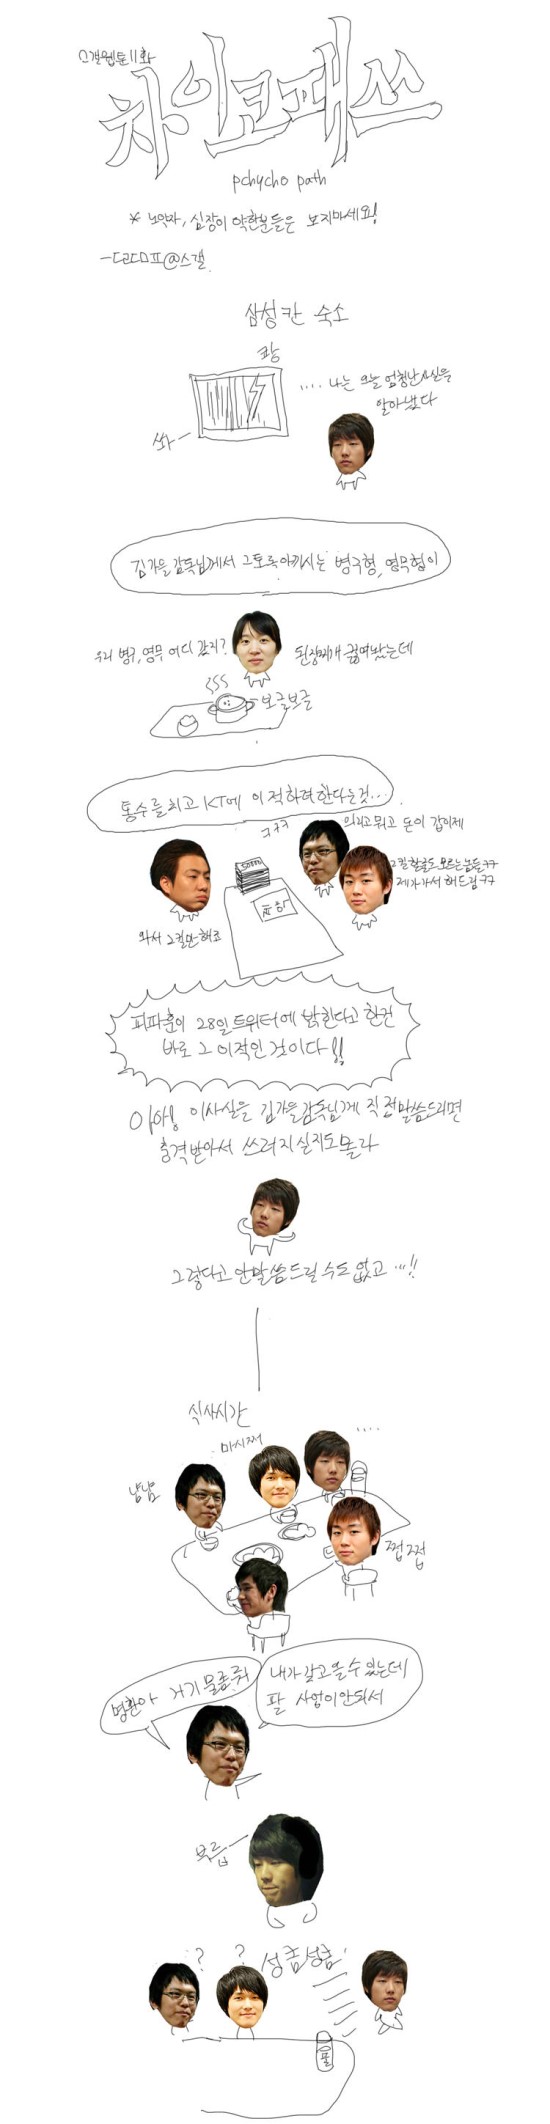 스갤웹툰11화
차이코패쓰
pchycho path
* 노약자, 심장이 약한분들은 보지마세요!
삼성칸 숙소
쾅
.... 나는 오늘 엄청난사실을
알아냈다
쏴ㅡ
김가을감독님께서 그토록아끼시는 병구형, 영무형이
우리 병구, 영무 어디 갔지?
된장찌개 끓여놨는데
보글보글
통수를치고 KT에 이적하려한다는것...
ㅋㅋㅋ
의리고뭐고 돈이 갑이제
제가가서 해드림ㅋㅋ
와서 2킬만해조
피파훈이 28일트위터에 밝힌다고 한건
바로 그 이적인것이다!!
아아! 이사실을 김가을감독님께 직접말씀드리면
충격받아서 쓰러지실지도몰라
그렇다고 안말씀드릴수도 없고 ...!!
식사시간
마시쪄
....
냠냠
쩝쩝
명환아 거기물좀줘
내가갖고올수있는데
팔 사업이안되서
뿌릅ㅡ
? ? 성큼성큼
물